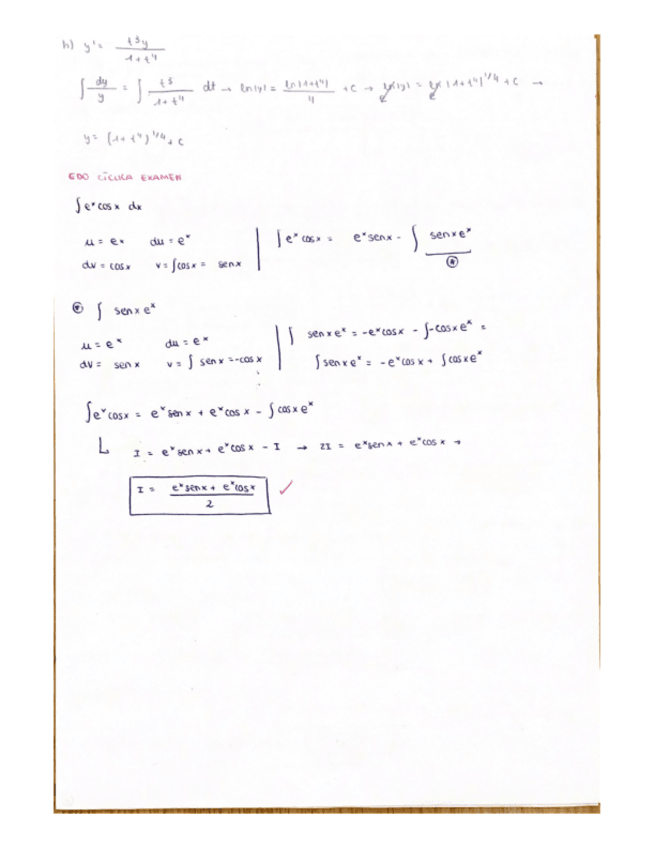 h) y' = t³y / 1+t⁴
∫ dy/y = ∫ t³/1+t⁴ dt → ln|y| = ln|1+t⁴|/4 + C → ln|y| = ln(1+t⁴)^1/4 + C →
y = (1+t⁴)^1/4 + C
EDO CÍCLICA EXAMEN
∫ eˣ cos x dx
u = eˣ du = eˣ | ∫ eˣ cos x = eˣ sen x - ∫ sen x eˣ
dv = cos x v = ∫ cos x = sen x | ⊛
⊛ ∫ sen x eˣ
u = eˣ du = eˣ | ∫ sen x eˣ = -eˣ cos x - ∫ -cos x eˣ =
dv = sen x v = ∫ sen x = -cos x | ∫ sen x eˣ = -eˣ cos x + ∫ cos x eˣ
∫ eˣ cos x = eˣ sen x + eˣ cos x - ∫ cos x eˣ
I = eˣ sen x + eˣ cos x - I → 2I = eˣ sen x + eˣ cos x →
I = eˣ sen x + eˣ cos x / 2 ✓